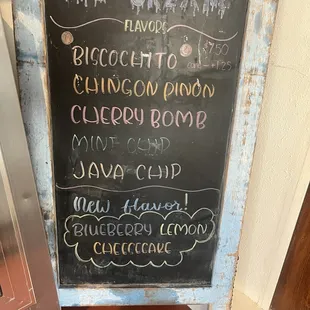 FLAVORS
BISCOCHITO
CHINGON PINON
CHERRY BOMB
MINT CHIP
JAVA CHIP
New flavor!
BLUEBERRY LEMON
CHEECECAKE